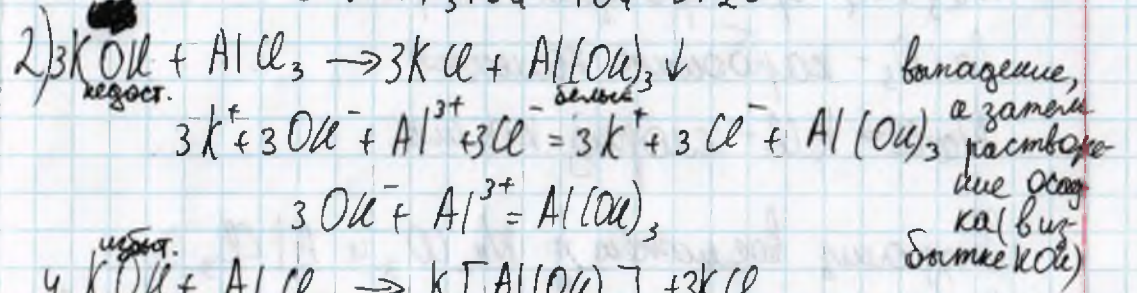 2) 3KOH + AlCl₃ → 3KCl + Al(OH)₃↓
недост. белый
3K⁺ + 3OH⁻ + Al³⁺ + 3Cl⁻ = 3K⁺ + 3Cl⁻ + Al(OH)₃
3OH⁻ + Al³⁺ = Al(OH)₃
избыт.
4KOH + AlCl → K[Al(OH)] + 3KCl
выпадение,
а затем
растворе-
ние осад
ка (в из-
бытке KOH)